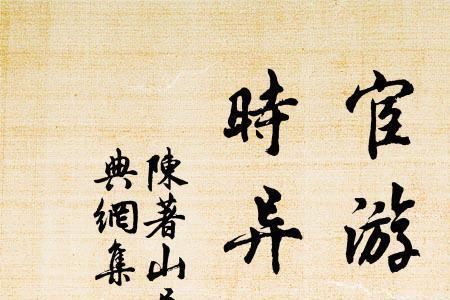 宦游
時异
陳著山
典網集